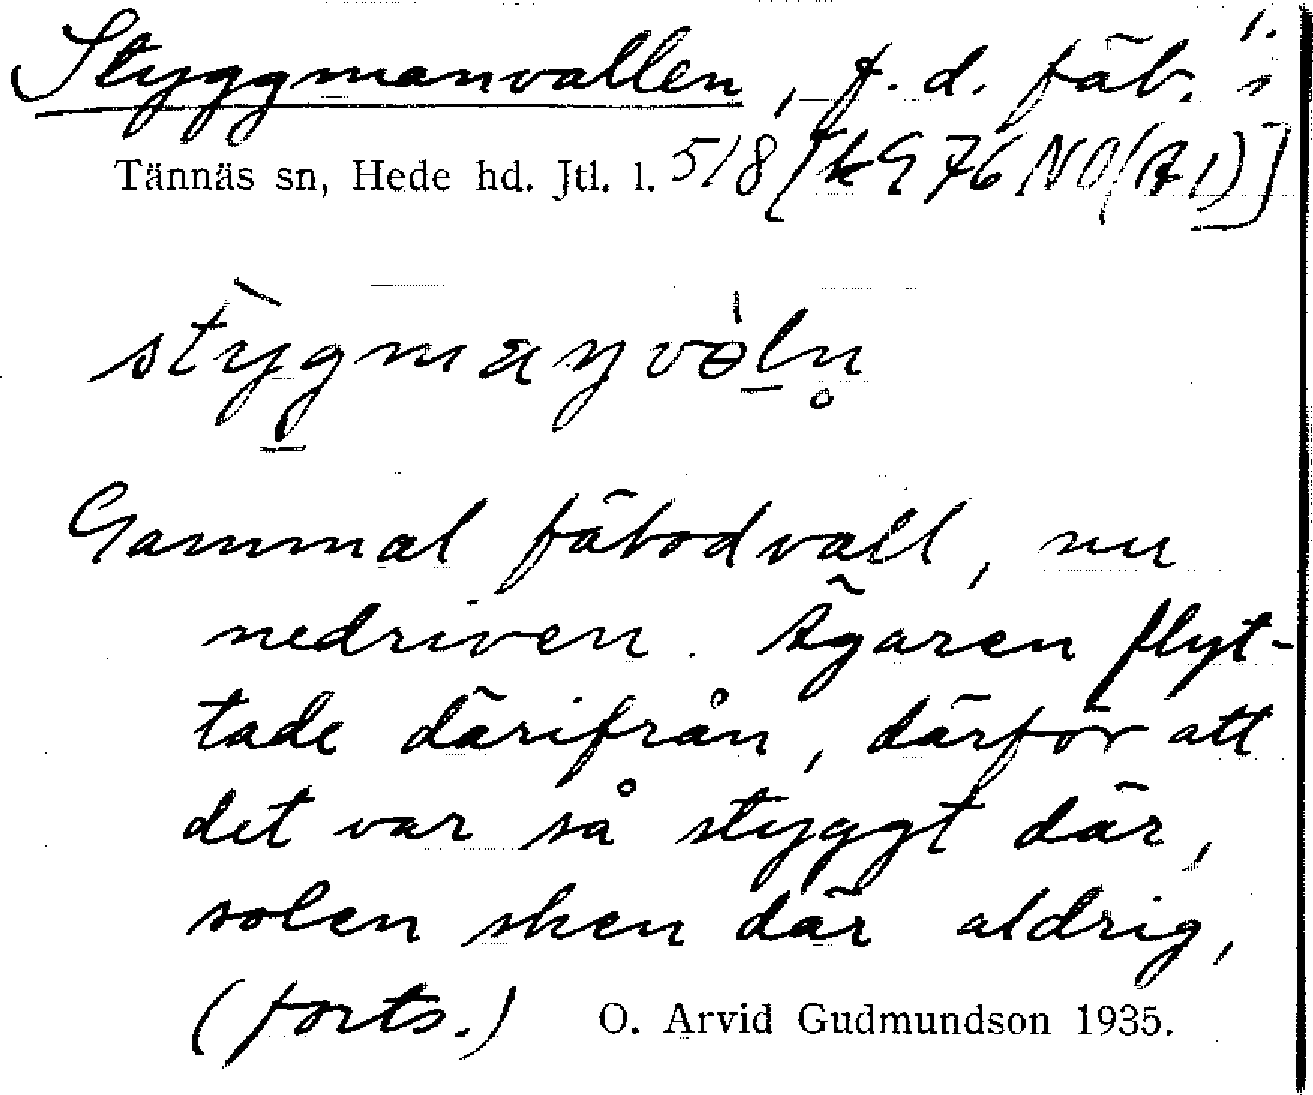 1.
Styggmanvallen, f.d. fäb. i
Tännäs sn, Hede hd. Jtl. l. 518 [kG 76 NO(A1)]
Gammal fäbodvall, nu
nedriven. Ägaren flyt-
tade därifrån, därför att
det var så styggt där,
solen sken där aldrig,
(forts.) O. Arvid Gudmundson 1935.